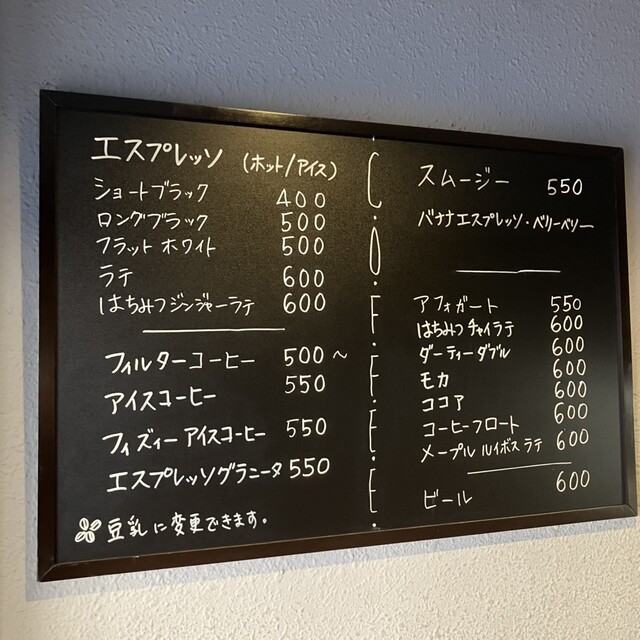 エスプレッソ (ホット/アイス)
ショートブラック 400
ロングブラック 500
フラットホワイト 500
ラテ 600
はちみつジンジャーラテ 600
フィルターコーヒー 500~
アイスコーヒー 550
フィズィーアイスコーヒー 550
エスプレッソグラニータ 550
豆乳に変更できます。
C.O.F.F.E.E.
スムージー 550
バナナエスプレッソ・ベリーベリー
アフォガート 550
はちみつチャイラテ 600
ダーティーダブル 600
モカ 600
ココア 600
コーヒーフロート 600
メープルルイボスラテ 600
ビール 600